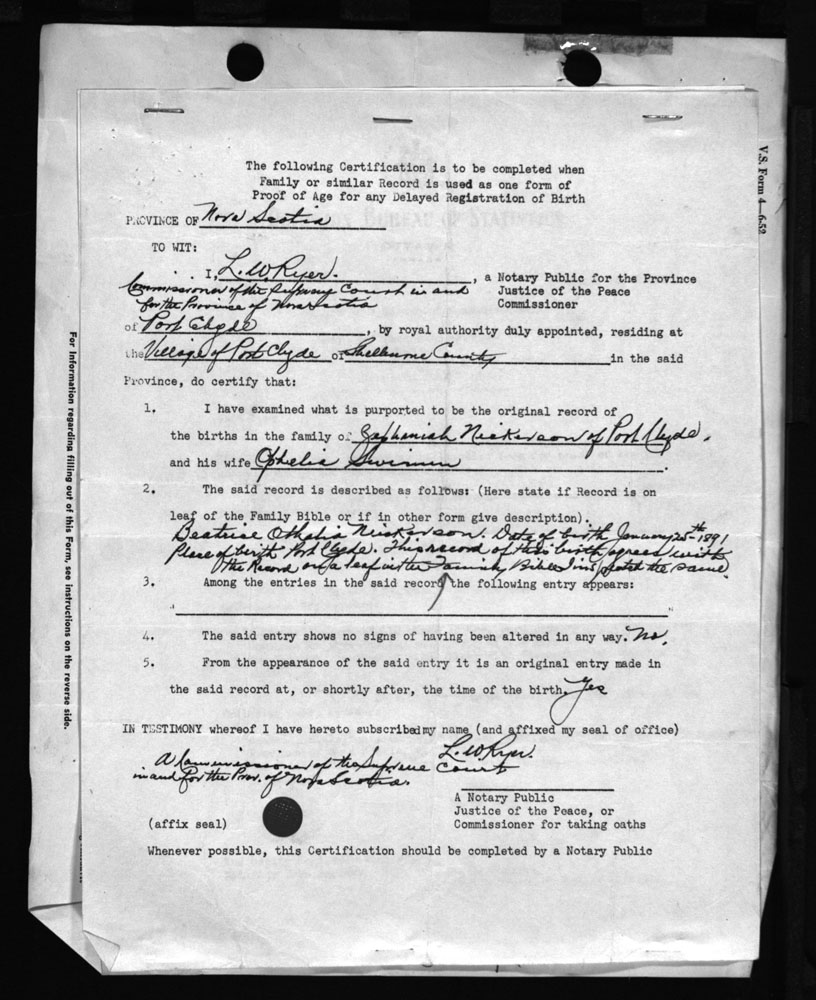 The following Certification is to be completed when
Family or similar Record is used as one form of
Proof of Age for any Delayed Registration of Birth
PROVINCE OF Nova Scotia
TO WIT:
I, L. W. Ryer. , a Notary Public for the Province
Commissioner of the Supreme Court in and Justice of the Peace
for the Province of Nova Scotia Commissioner
of Port Clyde , by royal authority duly appointed, residing at
the Village of Port Clyde of Shelburne County in the said
Province, do certify that:
1. I have examined what is purported to be the original record of
the births in the family of Zephaniah Nickerson of Port Clyde.
and his wife Ophelia Swimm .
2. The said record is described as follows: (Here state if Record is on
leaf of the Family Bible or if in other form give description).
Beatrice Othalia Nickerson. Date of birth January 25th 1891
Place of birth Port Clyde. This record of this birth agrees with
the Record on a leaf in the Family Bible I inspected the same.
3. Among the entries in the said record the following entry appears:
" "
4. The said entry shows no signs of having been altered in any way. No.
5. From the appearance of the said entry it is an original entry made in
the said record at, or shortly after, the time of the birth. Yes
IN TESTIMONY whereof I have hereto subscribed my name (and affixed my seal of office)
L. W. Ryer.
A Commissioner of the Supreme Court
in and for the Prov. of Nova Scotia.
A Notary Public
Justice of the Peace, or
(affix seal) Commissioner for taking oaths
Whenever possible, this Certification should be completed by a Notary Public
V.S. Form 4—6-52
For information regarding filling out of this Form, see instructions on the reverse side.